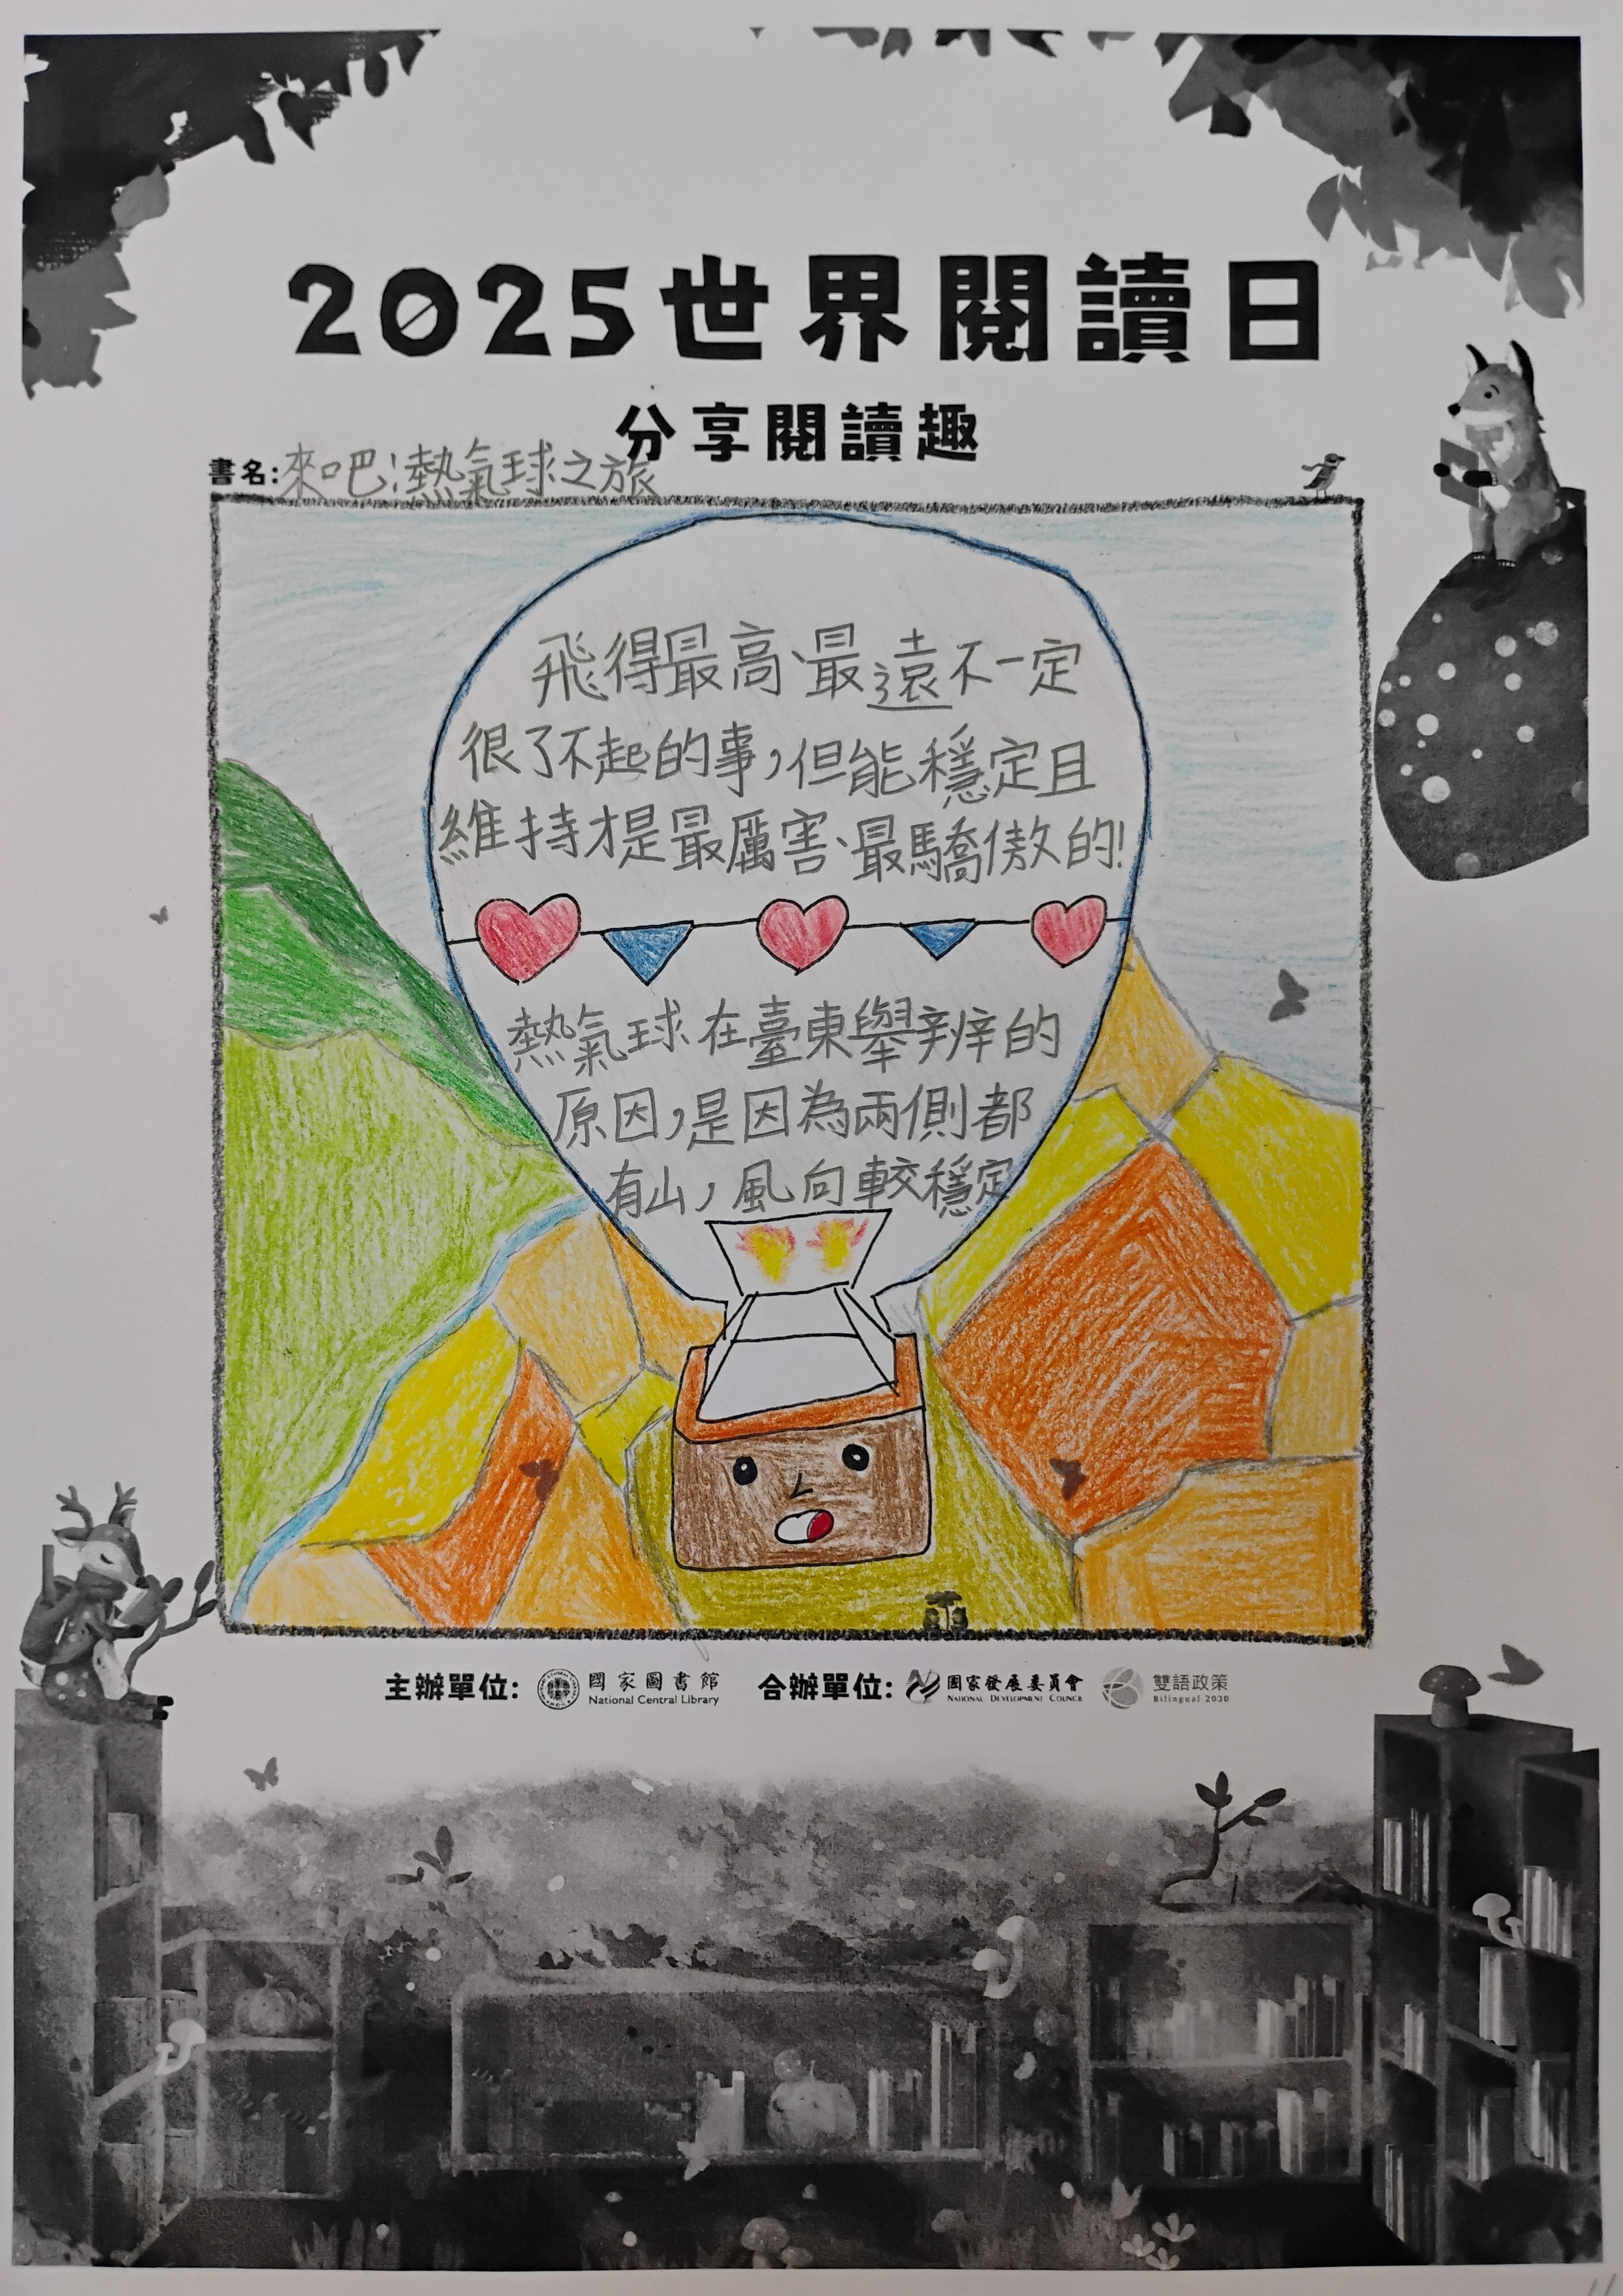 2025世界閱讀日
分享閱讀趣
書名:來吧!熱氣球之旅
飛得最高、最遠不一定
很了不起的事,但能穩定且
維持才是最厲害、最驕傲的!
熱氣球在臺東舉辦的
原因,是因為兩側都
有山,風向較穩定
主辦單位: 國家圖書館 合辦單位: 國家發展委員會 雙語政策
National Central Library NATIONAL DEVELOPMENT COUNCIL Bilingual 2030